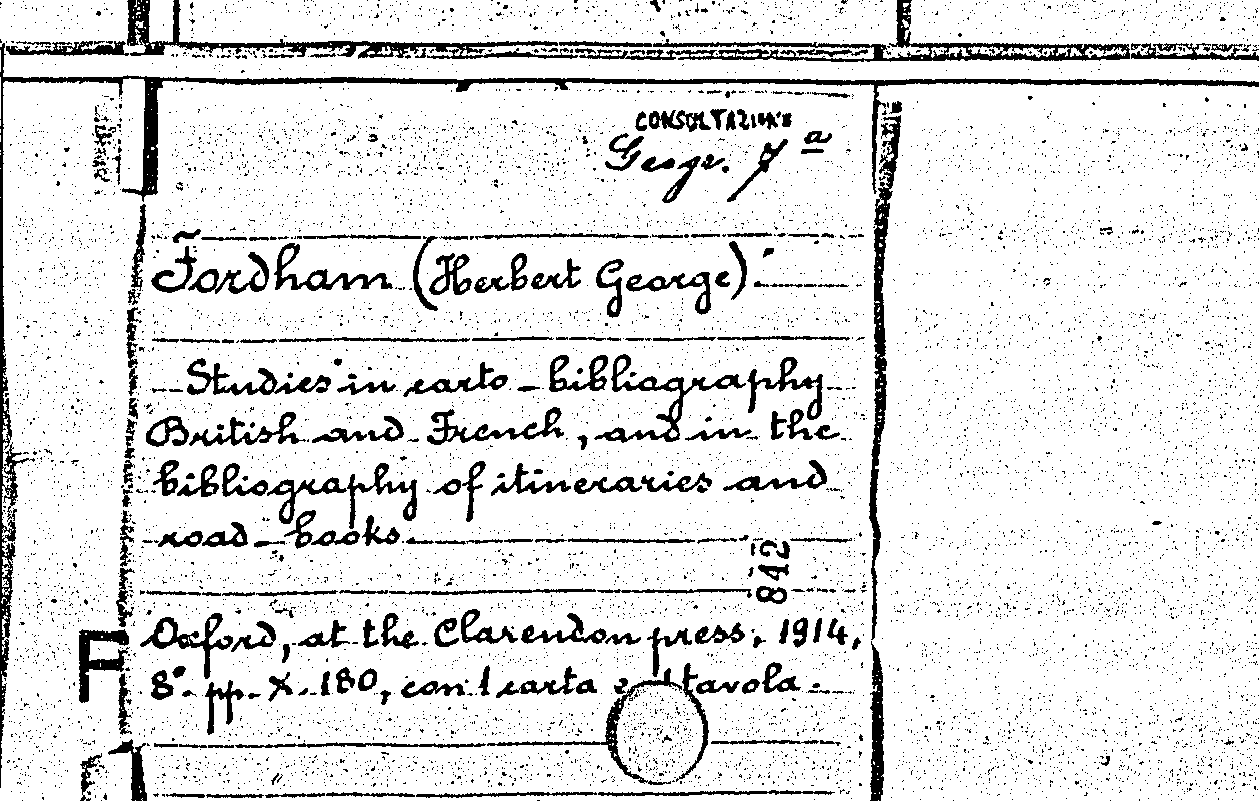 CONSULTAZIONE
Geogr. 7ª
Fordham (Herbert George).
Studies in carto-bibliography
British and French, and in the
bibliography of itineraries and
road-books.
842
Oxford, at the Clarendon press, 1914,
8°. pp. X. 180, con 1 carta e 1 tavola.
F